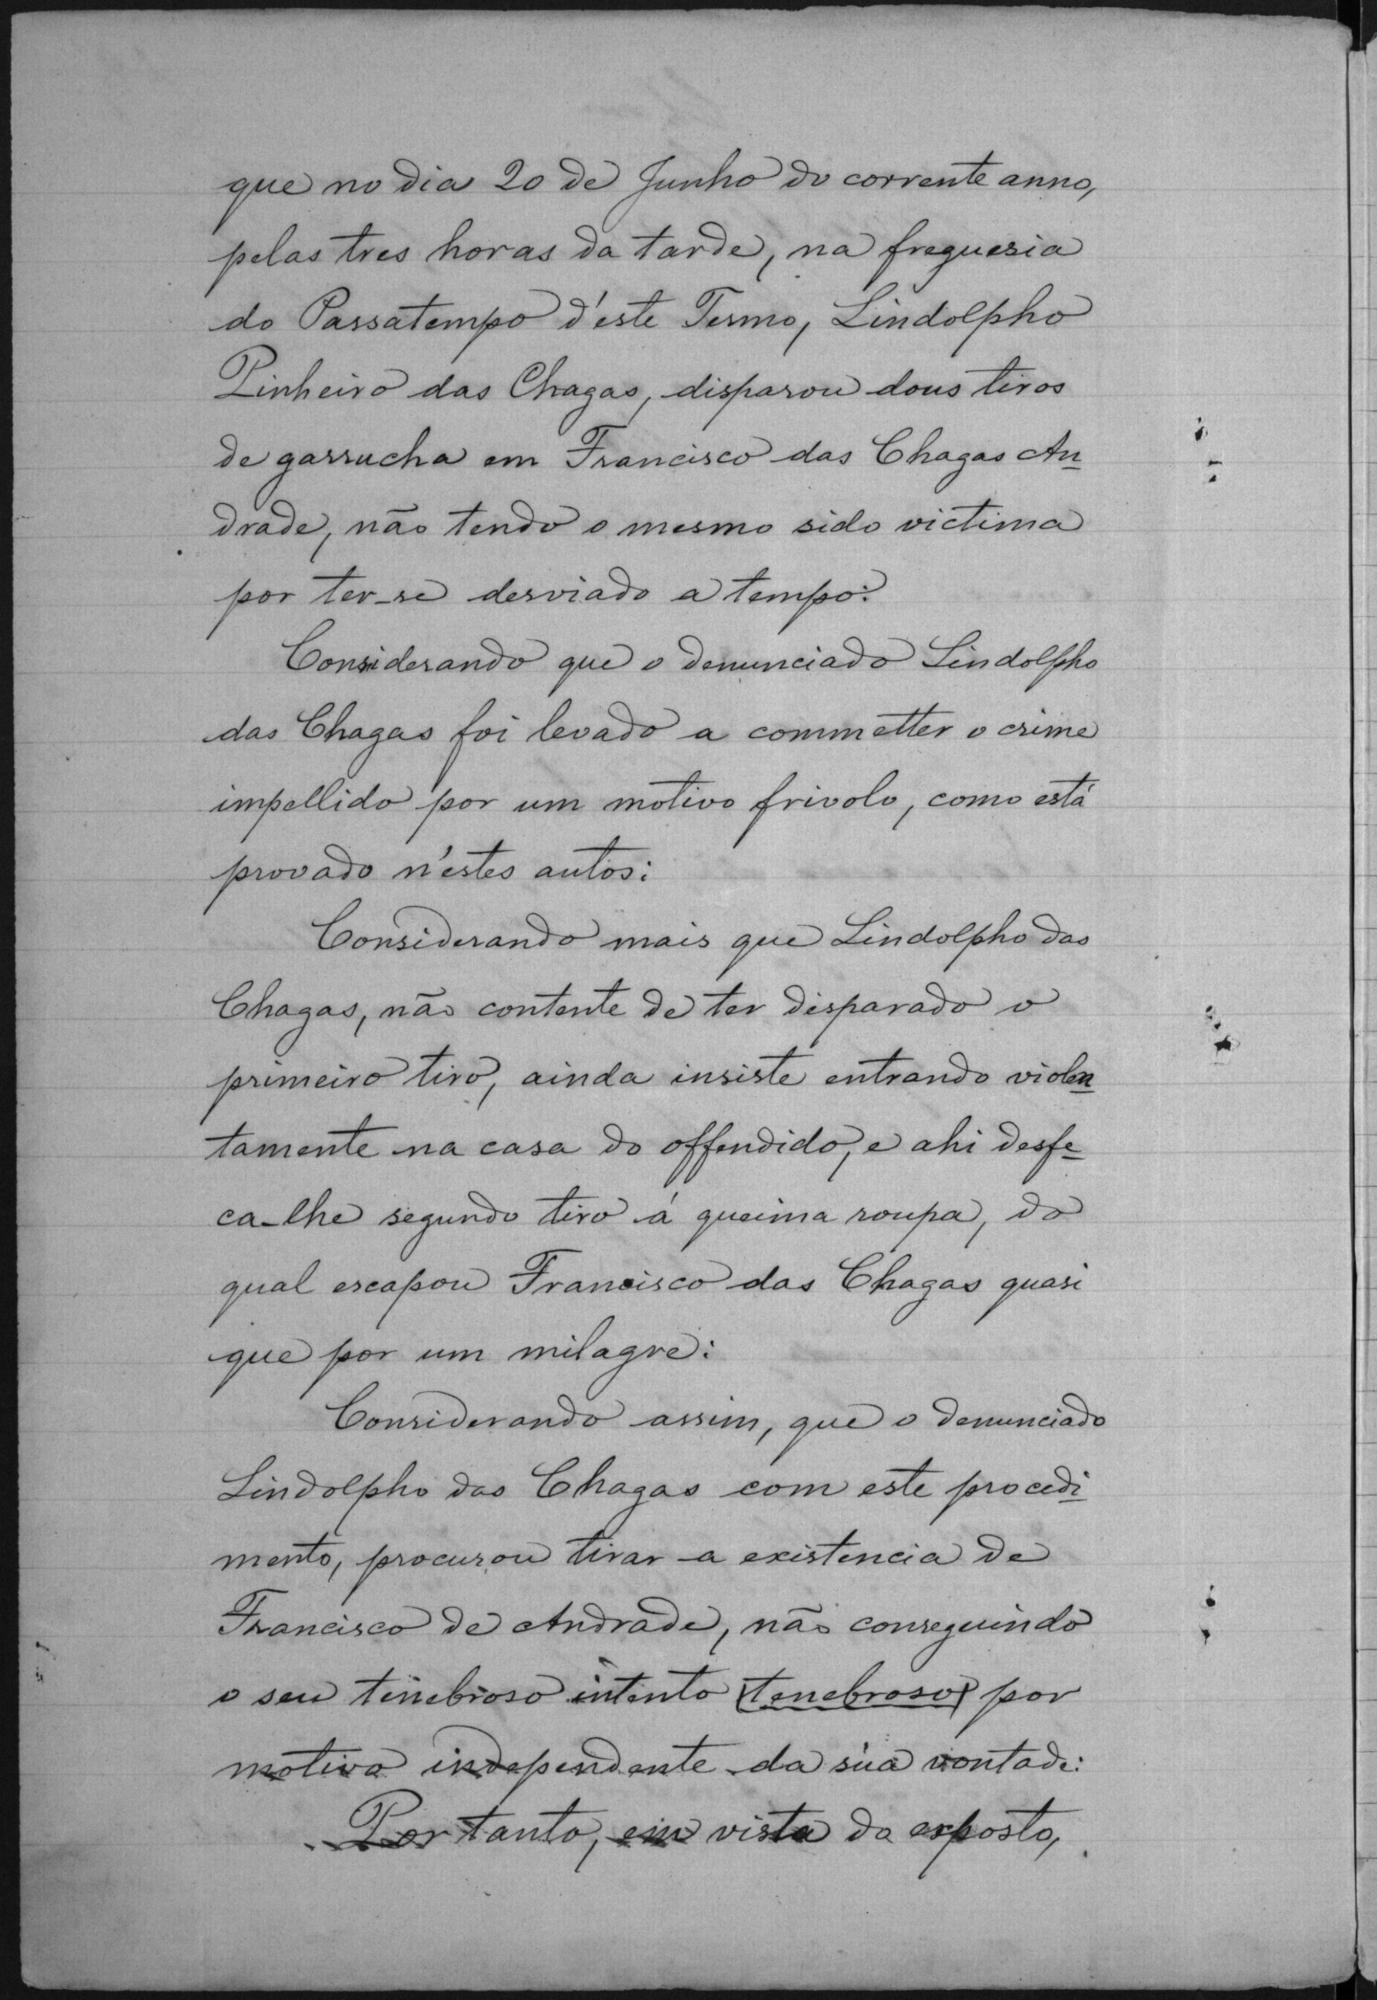 que no dia 20 de Junho do corrente anno,
pelas tres horas da tarde, na freguesia
do Passatempo d'este Termo, Lindolpho
Pinheiro das Chagas, disparou dous tiros
de garrucha em Francisco das Chagas An-
drade, não tendo o mesmo sido victima
por ter-se desviado a tempo:
Considerando que o denunciado Lindolpho
das Chagas foi levado a commetter o crime
impellido por um motivo frivolo, como está
provado n'estes autos:
Considerando mais que Lindolpho das
Chagas, não contente de ter disparado o
primeiro tiro, ainda insiste entrando violen-
tamente na casa do offendido, e ahi desfe-
ca-lhe segundo tiro á queima roupa, do
qual escapou Francisco das Chagas quasi
que por um milagre:
Considerando assim, que o denunciado
Lindolpho das Chagas com este procedi-
mento, procurou tirar a existencia de
Francisco de Andrade, não conseguindo
o seu tenebroso intento (tenebroso) por
motivo independente da sua vontade:
Portanto, em vista do exposto,